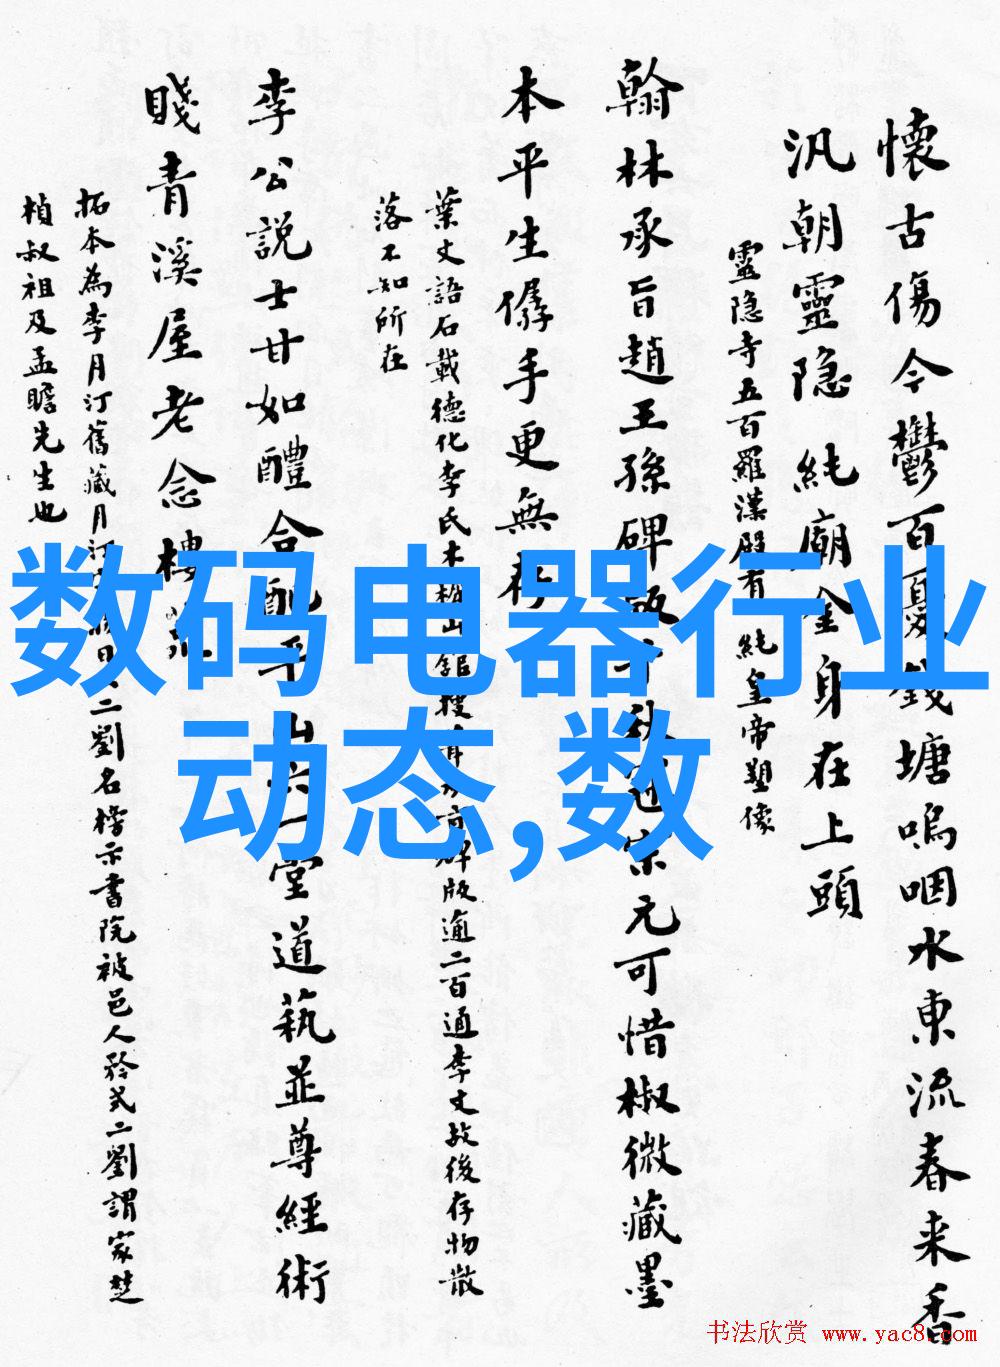 懷古傷今鬱百憂錢塘嗚咽水東流春来香
汎朝靈隐純廟金身在上頭
靈隐寺五百羅漢殿有純皇帝塑像
翰林承旨趙王孫碑版千秋冠宋元可惜椒微藏墨
本平生僝手更無存
葉文語石載德化李氏木樨山館搜有碑版逾二百通李文故後存物散
落不知所在
李公説士甘如醴合配平山六一堂道藝並尊經術
賤青溪屋老念樓
拓本為李月汀舊藏月汀二劉名榜示書院被邑人矜式二劉謂家楚
楨叔祖及孟瞻先生也
数码电器行业
动态,数
书法欣赏 www.yac8.com